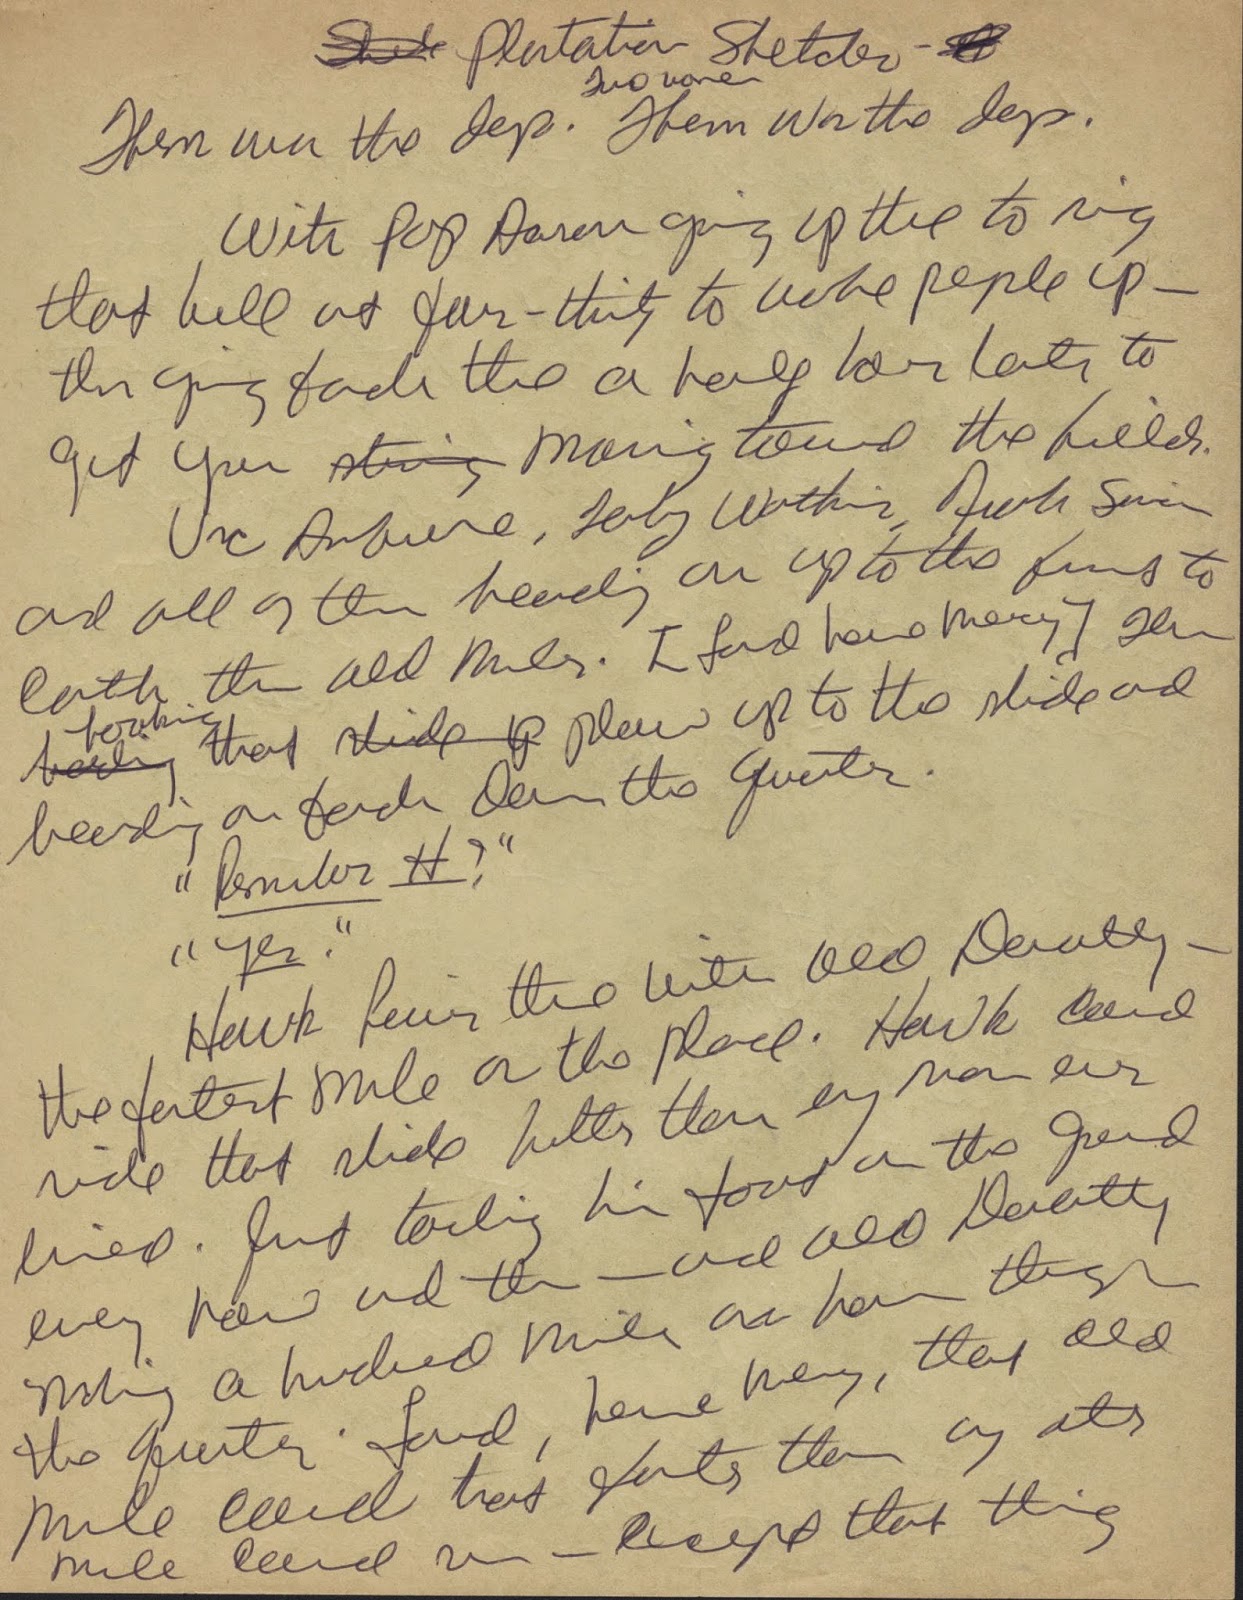 Plantation Sketches -
Two women
Them was the days. Them was the days.
With Pap Aaron going up there to ring
that bell at four-thirty to wake people up -
then going back there a half hour later to
get you string moving toward the fields.
Unc and all of them heading on up to the front to
catch them old mules. I Lord have mercy] Then
heading hooking that slide up plow up to the slide and
heading on back down the quarter.
"Remember H?"
"Yes."
Hawk being there with old Dorothy -
the fastest mule on the place. Hawk could
ride that slide better than any man ever
lived. Just touching his foot on the ground
every now and then - and old Dorothy
making a hundred miles an hour through
the quarter. Lord, have mercy, that old
mule could trot faster than any other
mule could run - except that thing